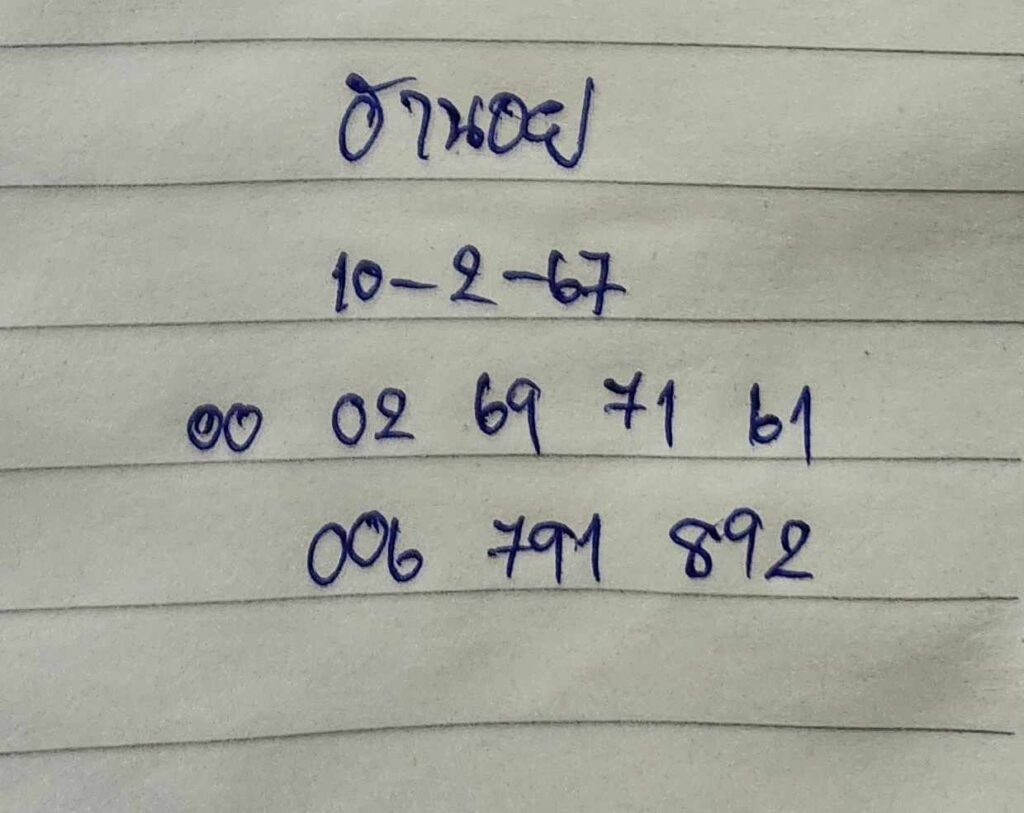 อ้านอย
10-2-67
00 02 69 71 61
006 791 892